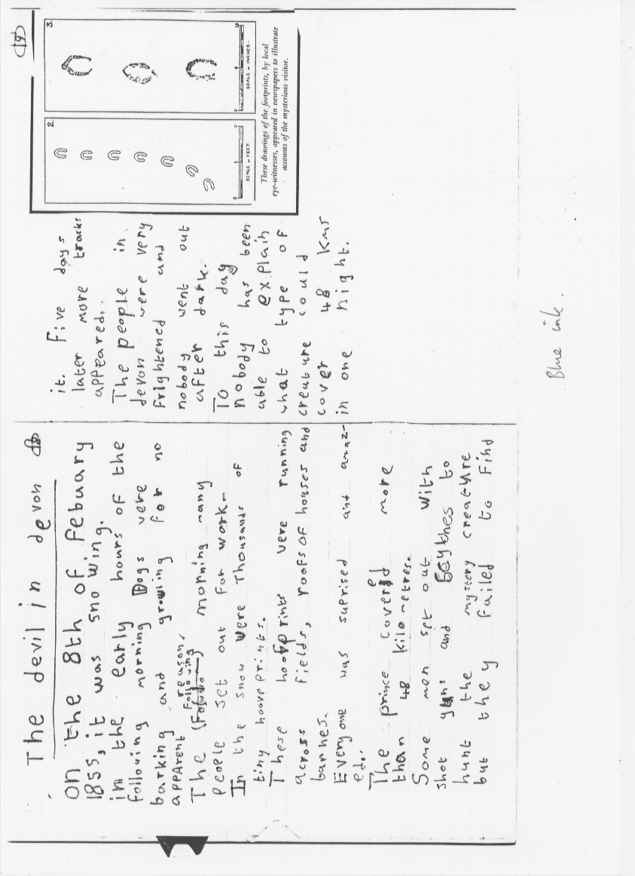 The devil in devon
18
On the 8th of Febuary
1855, it was snowing.
in the early hours of the
following morning Dogs were
barking and growling for no
apparent reason.
Following
The (Follow) morning many
people set out for work-
In the snow were Thousands of
tiny hoove prints.
These hoofprints were running
across fields, roofs of houses and
barnes.
Everyone was suprised and amaz-
ed.
The prince covered more
than 48 kilometres.
Some men set out with
shot guns and Scythes to
hunt the mystery creature
but they failed to find
it. Five days
later more tracks
appeared.
The people in
devon were very
frightened and
nobody went out
after dark.
To this day
nobody has been
able to explain
what type of
creature could
cover 48 kms
in one night.
19
2
SCALE - FEET
3
SCALE - INCHES
These drawings of the footprints, by local
eye-witnesses, appeared in newspapers to illustrate
accounts of the mysterious visitor.
Blue ink.